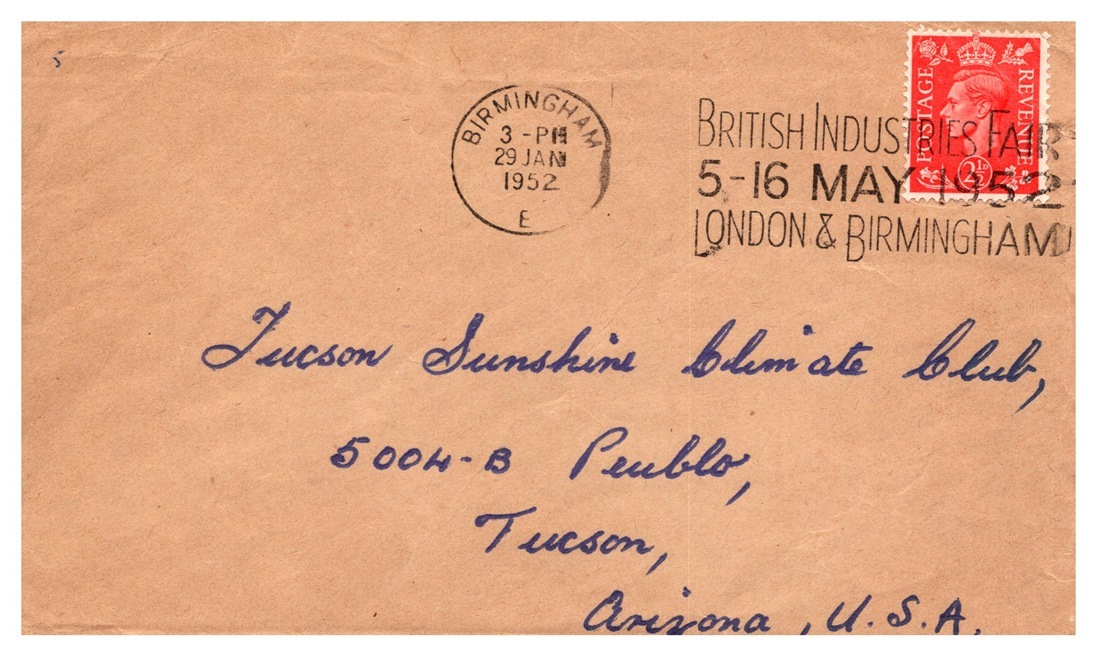 5
BIRMINGHAM
3 - PM
29 JAN
1952
E
BRITISH INDUSTRIES FAIR
5-16 MAY 1952
LONDON & BIRMINGHAM
POSTAGE
REVENUE
2½D
Tucson Sunshine Climate Club,
5004-B Peublo,
Tucson,
Arizona, U.S.A.